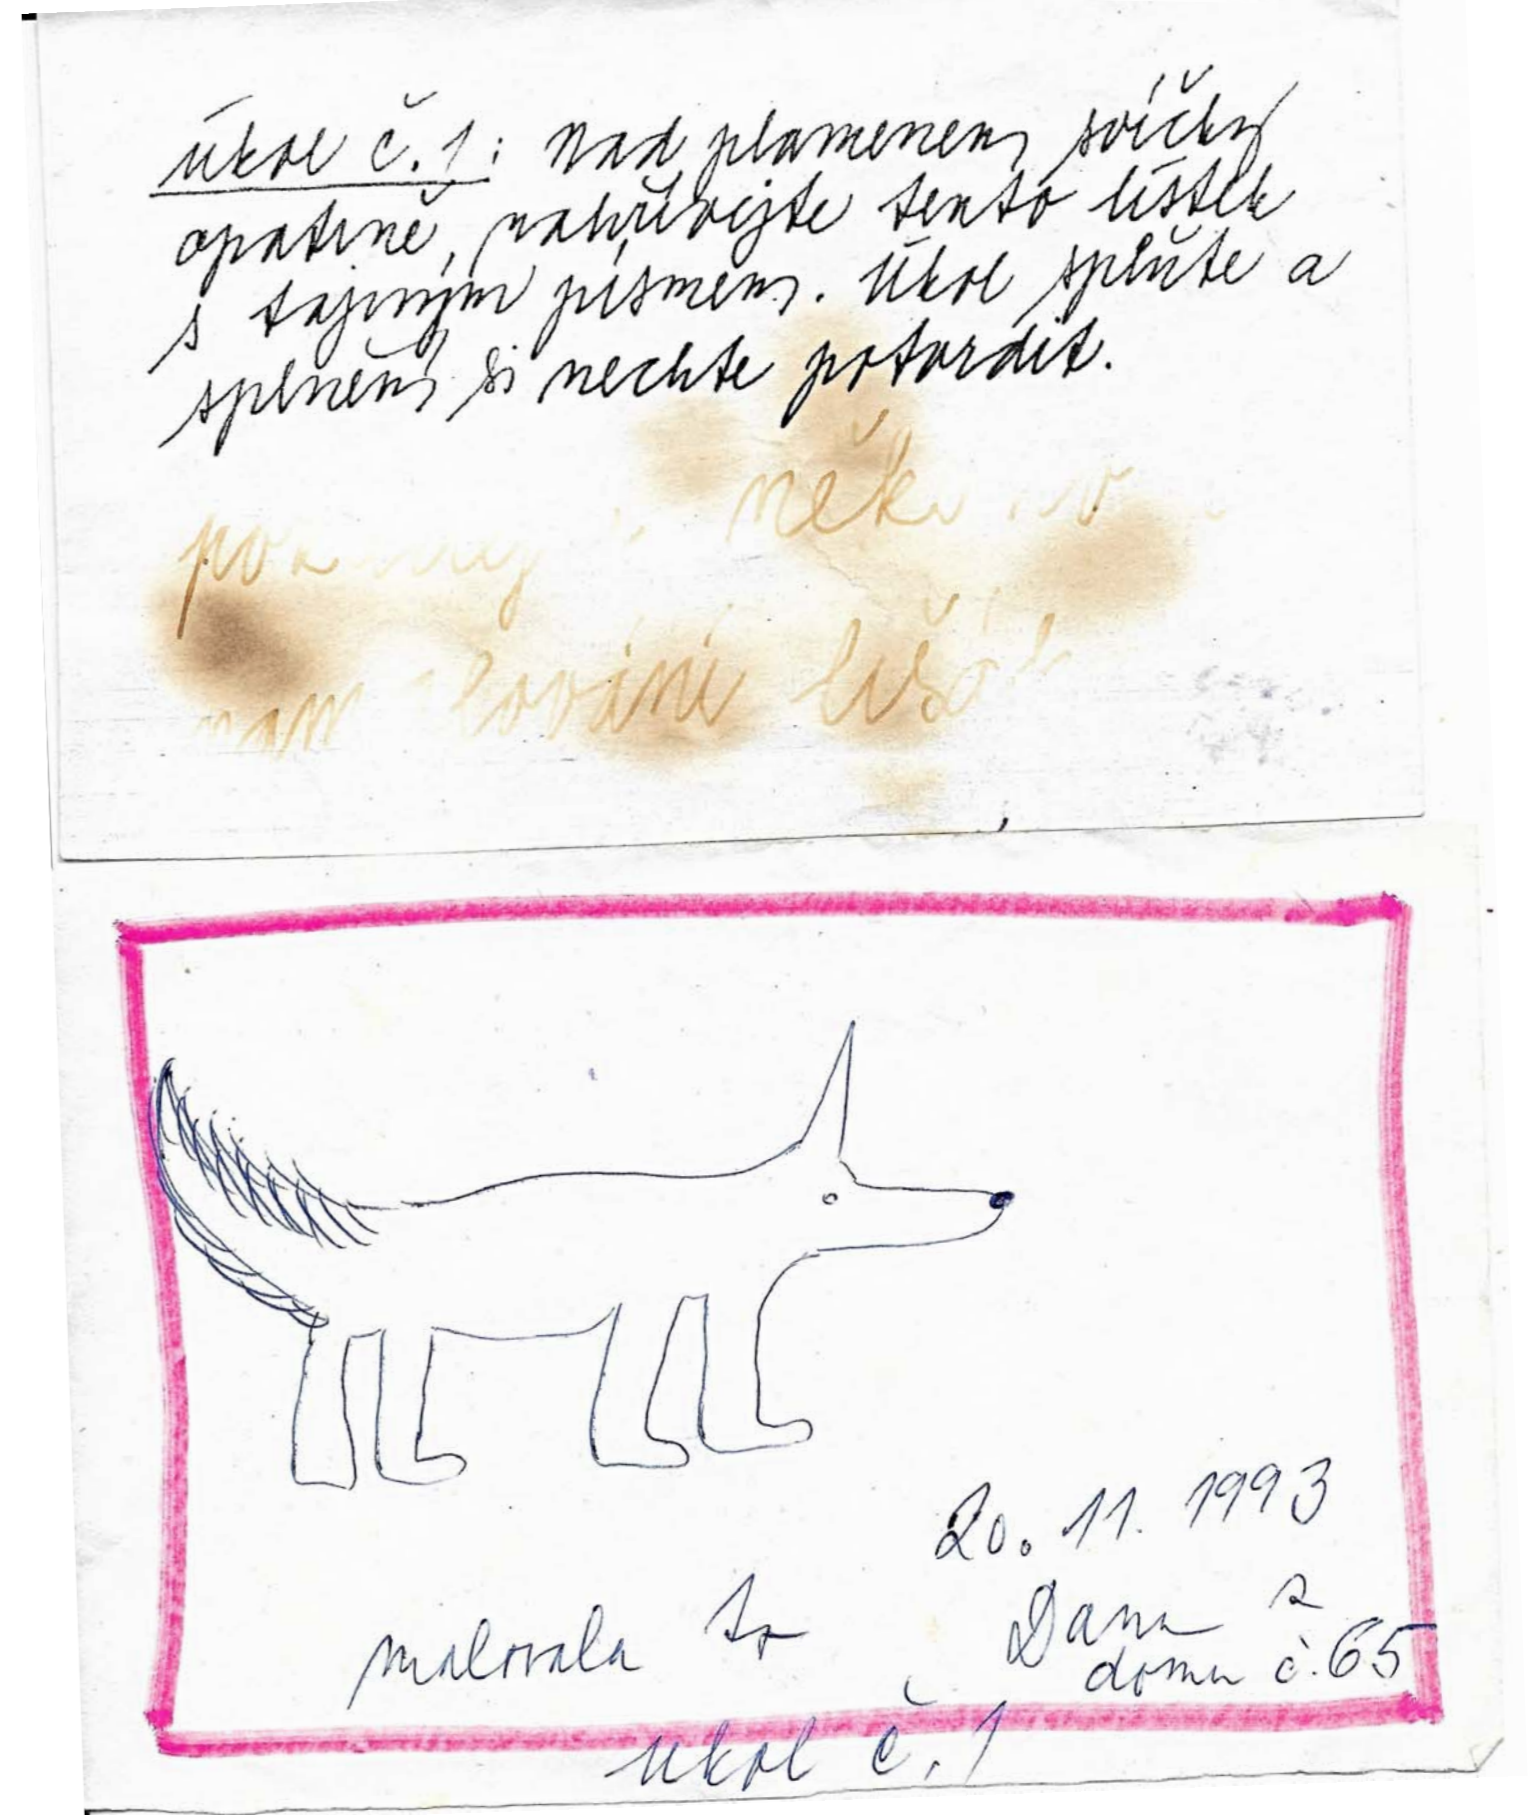 úkol č. 1: Nad plamenem svíčky
opatrně nahřívejte tento lístek
s tajným písmem. Úkol splňte a
splnění si nechte potvrdit.
malování
20. 11. 1993
malovala to Dana z
domu č. 65
úkol č. 1